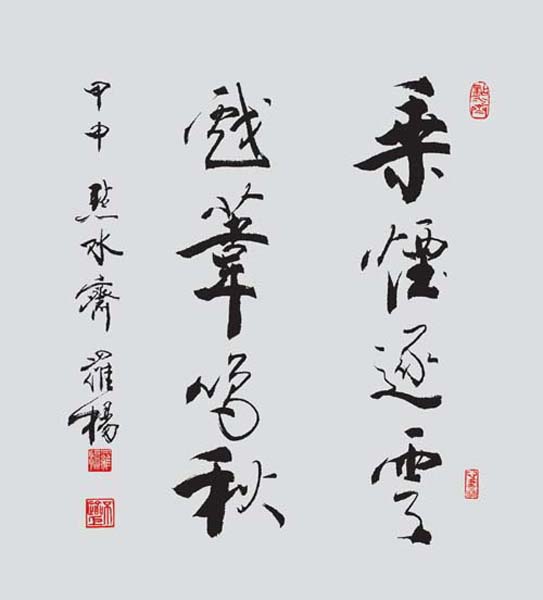 乘煙逐雲
戲葦鳴秋
甲申 點水齋 羅楊